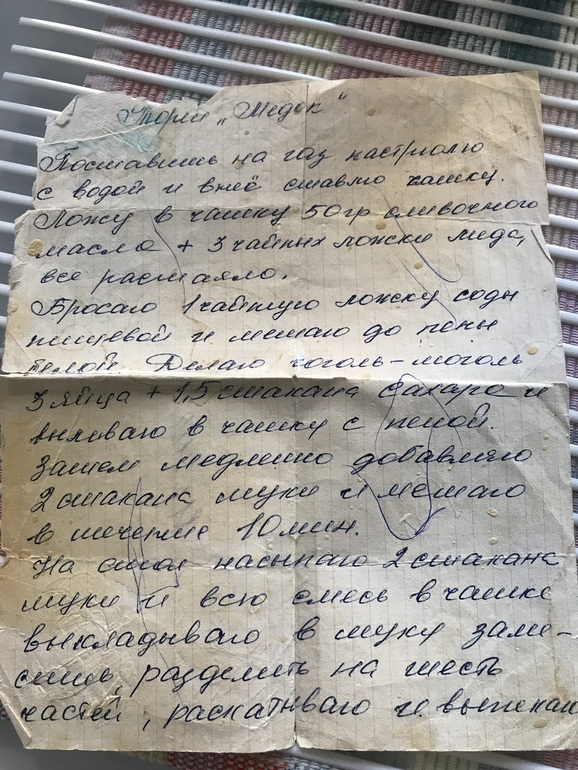 Торт „Медок"
Поставишь на газ кастрюлю
с водой и в неё ставлю чашку.
Ложу в чашку 50гр сливочного
масло + 3 чайных ложки меда,
все растаяло.
Бросаю 1 чайную ложку соды
пищевой и мешаю до пены
белой. Делаю гоголь-моголь
3 яйца + 1,5 стакана сахара и
выливаю в чашку с пеной.
Затем медленно добавляю
2 стакана муки и мешаю
в течение 10 мин.
На стол насыпаю 2 стакана
муки и всю смесь в чашке
выкладываю в муку заме-
сить, разделить на шесть
частей, раскатываю и выпекаю